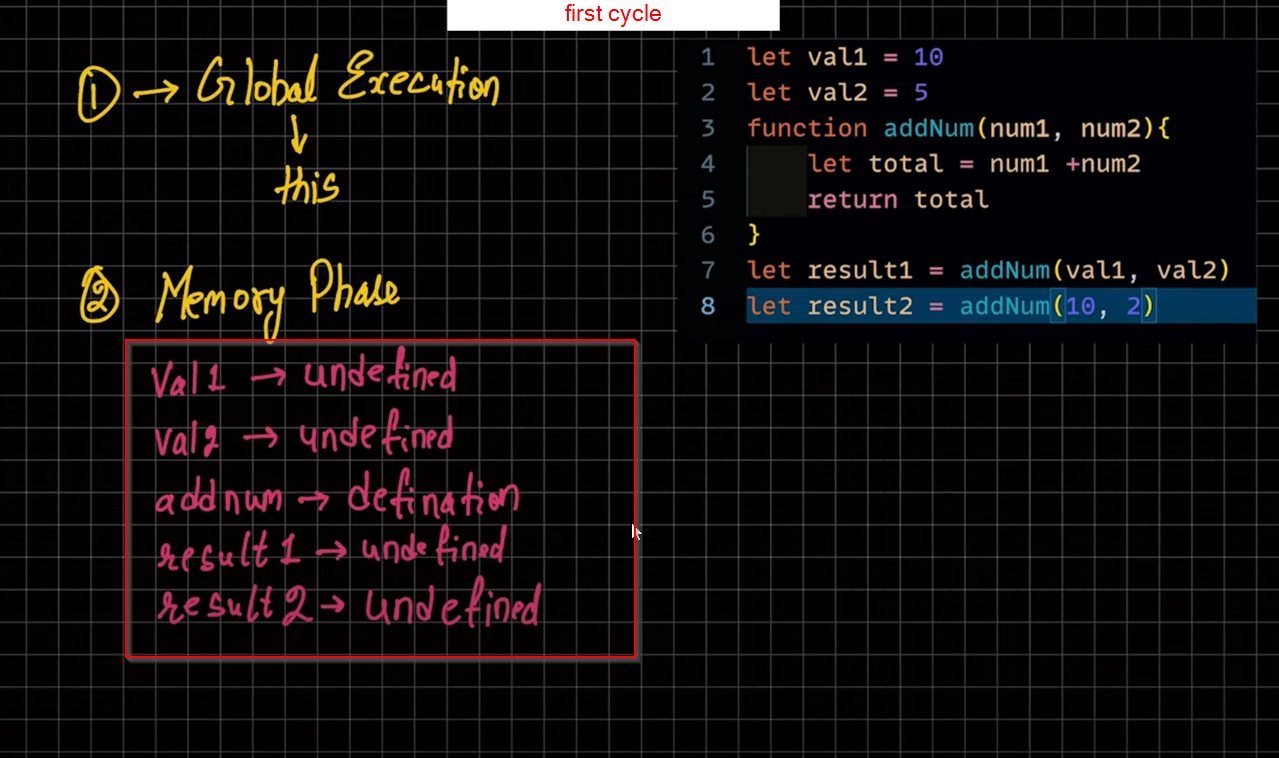 first cycle
① → Global Execution
↓
this
② Memory Phase
Val1 → undefined
val2 → undefined
addnum → defination
result1 → undefined
result2 → undefined
1 let val1 = 10
2 let val2 = 5
3 function addNum(num1, num2){
4 let total = num1 +num2
5 return total
6 }
7 let result1 = addNum(val1, val2)
8 let result2 = addNum(10, 2)